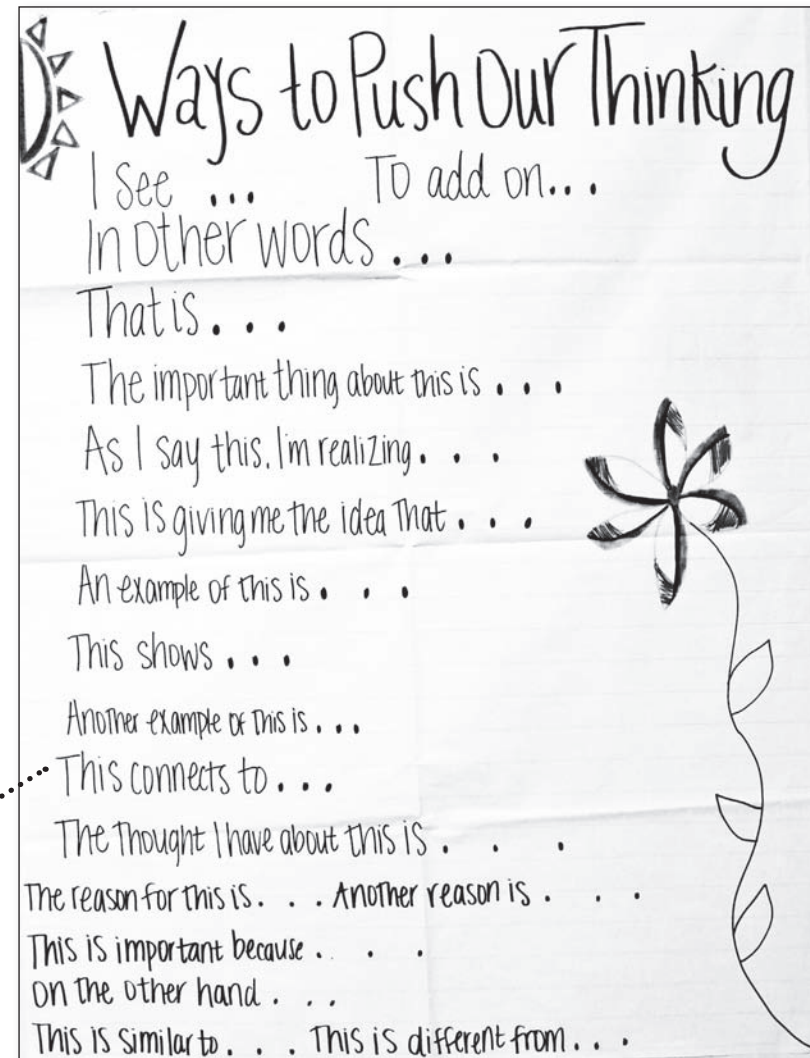 Ways to Push Our Thinking
I see ... To add on...
In other words ...
That is ...
The important thing about this is ...
As I say this, I'm realizing ...
This is giving me the idea that ...
An example of this is ...
This shows ...
Another example of this is ...
This connects to ...
The thought I have about this is ...
The reason for this is ... Another reason is ...
This is important because ...
On the other hand ...
This is similar to ... This is different from ...